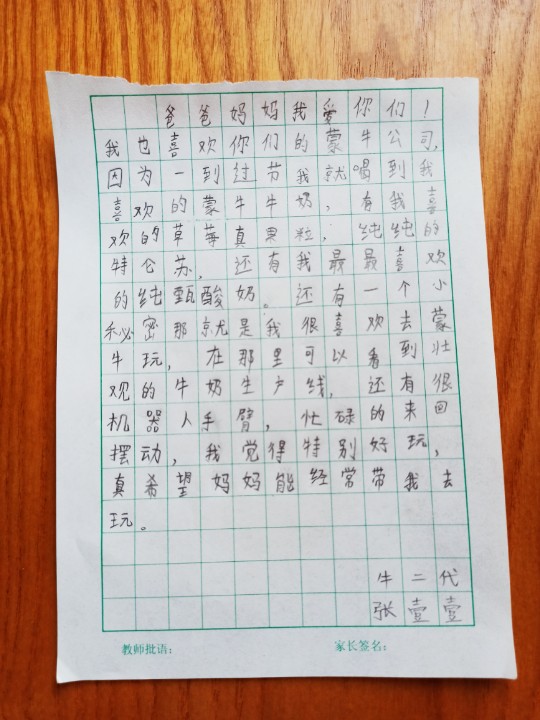 爸爸妈妈我爱你们！
我也喜欢你们的蒙牛公司，
因为一到过节我就喝到我
喜欢的蒙牛牛奶，有我喜
欢的草莓真果粒，纯纯的
特仑苏，还有我最最喜欢
的纯甄酸奶。还有一个小
秘密那就是我很喜欢去蒙
牛玩，在那里可以看到壮
观的牛奶生产线，还有很
机器人手臂，忙碌的来回
摆动，我觉得特别好玩，
真希望妈妈能经常带我去
玩。
牛二代
张壹壹
教师批语：
家长签名：